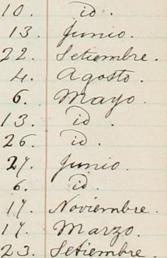 10. id.
13. Junio.
22. Setiembre.
4. Agosto.
6. Mayo.
13. id.
26. id.
27. Junio.
6. id.
17. Noviembre.
17. Marzo.
23. Setiembre.